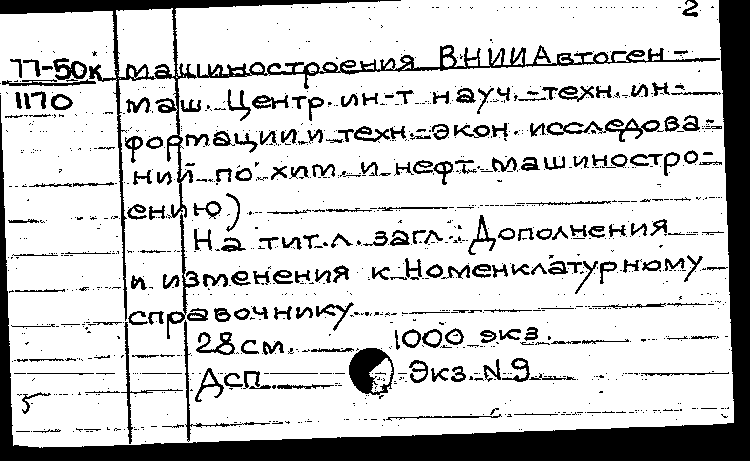 2
77-50к машиностроения ВНИИАвтоген-
1170 маш. Центр. ин-т науч.-техн. ин-
формации и техн.-экон. исследова-
ний по хим. и нефт. машиностро-
ению)
На тит.л. загл.: Дополнения
и изменения к Номенклатурному
справочнику
28 см. 1000 экз.
Дсп Экз. N 9
5